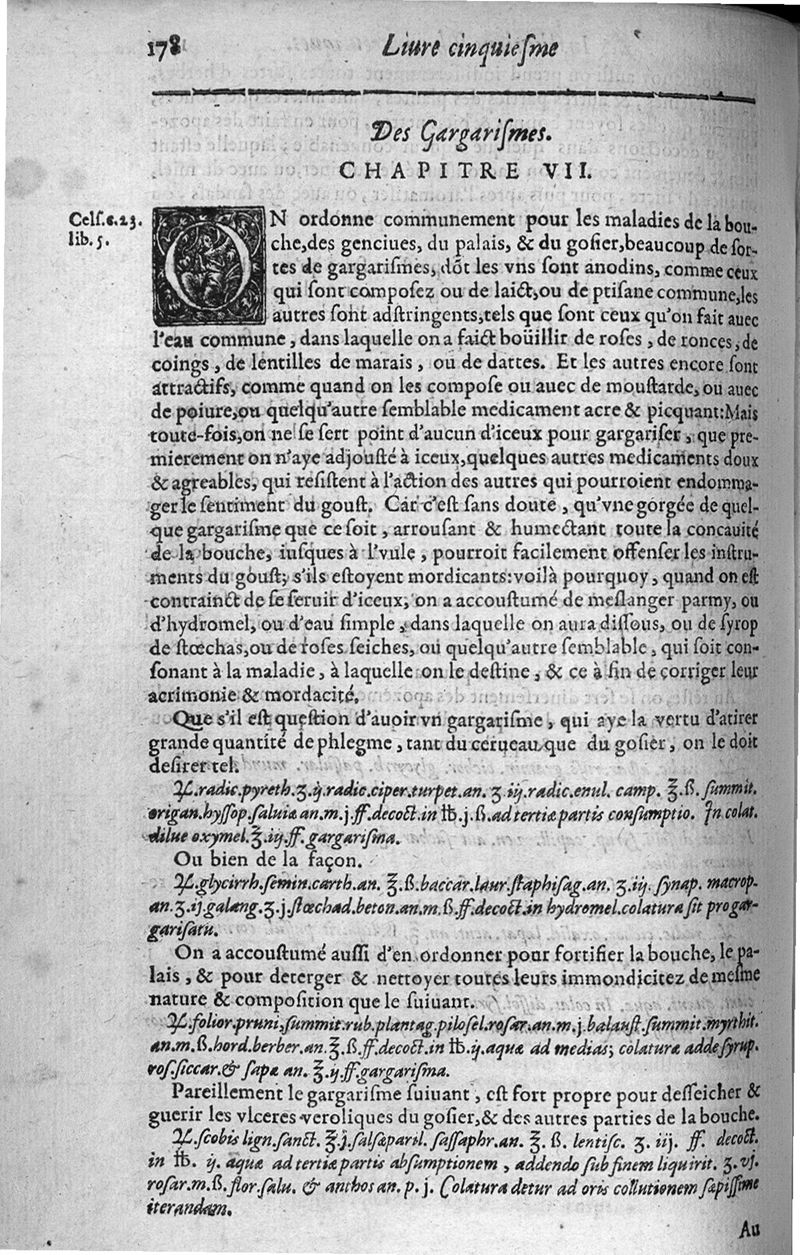 178
Liure cinquiesme
Des Gargarismes.
CHAPITRE VII.
Cels. 6. 23.
lib. 5.
ON ordonne communement pour les maladies de la bou-
che, des genciues, du palais, & du gosier, beaucoup de sor-
tes de gargarismes, dõt les vns sont anodins, comme ceux
qui sont composez ou de laict, ou de ptisane commune, les
autres sont adstringents, tels que sont ceux qu'on fait auec
l'eau commune, dans laquelle on a faict boüillir de roses, de ronces, de
coings, de lentilles de marais, ou de dattes. Et les autres encore sont
attractifs, comme quand on les compose ou auec de moustarde, ou auec
de poiure, ou quelqu'autre semblable medicament acre & picquant: Mais
toute-fois, on ne se sert point d'aucun d'iceux pour gargariser, que pre-
mierement on n'aye adjousté à iceux, quelques autres medicaments doux
& agreables, qui resistent à l'action des autres qui pourroient endomma-
ger le sentiment du goust. Car c'est sans doute, qu'vne gorgée de quel-
que gargarisme que ce soit, arrousant & humectant toute la concauité
de la bouche, iusques à l'vule, pourroit facilement offenser les instru-
ments du goust; s'ils estoyent mordicants: voilà pourquoy, quand on est
contrainct de se seruir d'iceux, on a accoustumé de meslanger parmy, ou
d'hydromel, ou d'eau simple, dans laquelle on aura dissous, ou de syrop
de stœchas, ou de roses seiches, ou quelqu'autre semblable, qui soit con-
sonant à la maladie, à laquelle on le destine, & ce à fin de corriger leur
acrimonie & mordacité.
Que s'il est question d'auoir vn gargarisme, qui aye la vertu d'atirer
grande quantité de phlegme, tant du cerueau que du gosier, on le doit
desirer tel.
℞. radic. pyreth. ʒ. ij. radic. ciper. turpet. an. ʒ iij. radic. enul. camp. ℥. ß. summit.
origan. hyssop. saluiæ an. m. j. ff. decoct. in ℔. j. ß. ad tertiæ partis consumptio. In colat.
dilue oxymel. ℥. iij. ff. gargarisma.
Ou bien de la façon.
℞. glycirrh. semin. carth. an. ℥. ß. baccar. laur. staphisag. an. ʒ. iij. synap. macrop.
an. ʒ. ij. galang. ʒ. j. stœchad. beton. an. m. ß. ff. decoct. in hydromel. colatura sit pro gar-
garisatu.
On a accoustumé aussi d'en ordonner pour fortifier la bouche, le pa-
lais, & pour deterger & nettoyer toutes leurs immondicitez de mesme
nature & composition que le suiuant.
℞. folior. pruni, summit. rub. plantag. pilosel. rosar. an. m. j. balaust. summit. myrthit.
an. m. ß. hord. berber. an. ℥. ß. ff. decoct. in ℔. ij. aquæ ad medias; colaturæ adde syrup.
ros. siccar. & sapæ an. ℥. ij. ff. gargarisma.
Pareillement le gargarisme suiuant, est fort propre pour desseicher &
guerir les vlceres veroliques du gosier, & des autres parties de la bouche.
℞. scobis lign. sanct. ℥. j. salsæparil. sassaphr. an. ℥. ß. lentisc. ʒ. iij. ff. decoct.
in ℔. ij. aquæ ad tertiæ partis absumptionem, addendo sub finem liquirit. ʒ. vj.
rosar. m. ß. flor. salu. & anthos an. p. j. Colatura detur ad oris collutionem sæpissime
iterandam.
Au